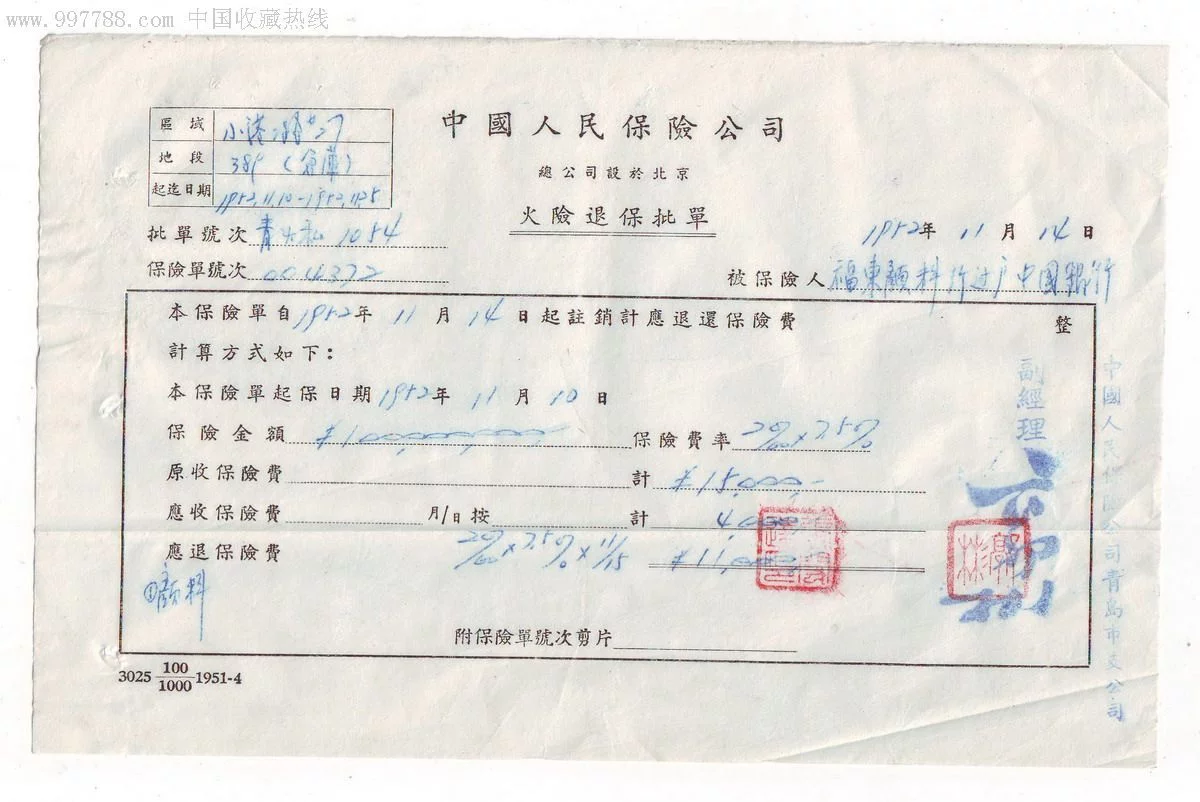 www.997788.com 中国收藏热线
中國人民保險公司
總公司設於北京
火險退保批單
區域 小港二路
地段 389 (倉庫)
起迄日期 1952.11.10-1952.11.25
批單號次 青火私 1054
保險單號次 004372
1952年 11 月 14 日
被保險人 福東顏料行过户中國銀行
本保險單自1952年 11 月 14 日起註銷計應退還保險費 整
計算方式如下:
本保險單起保日期1952年 11 月 10 日
保險金額 ¥100,000,000 保險費率 2‰×7.5%
原收保險費 計 ¥15,000,-
應收保險費 月/日 按 計 4,000
應退保險費 2‰×7.5%×11/15 ¥11,000
①顏料
附保險單號次剪片
3025 100/1000 1951-4
副經理
中國人民保險公司青島市支公司